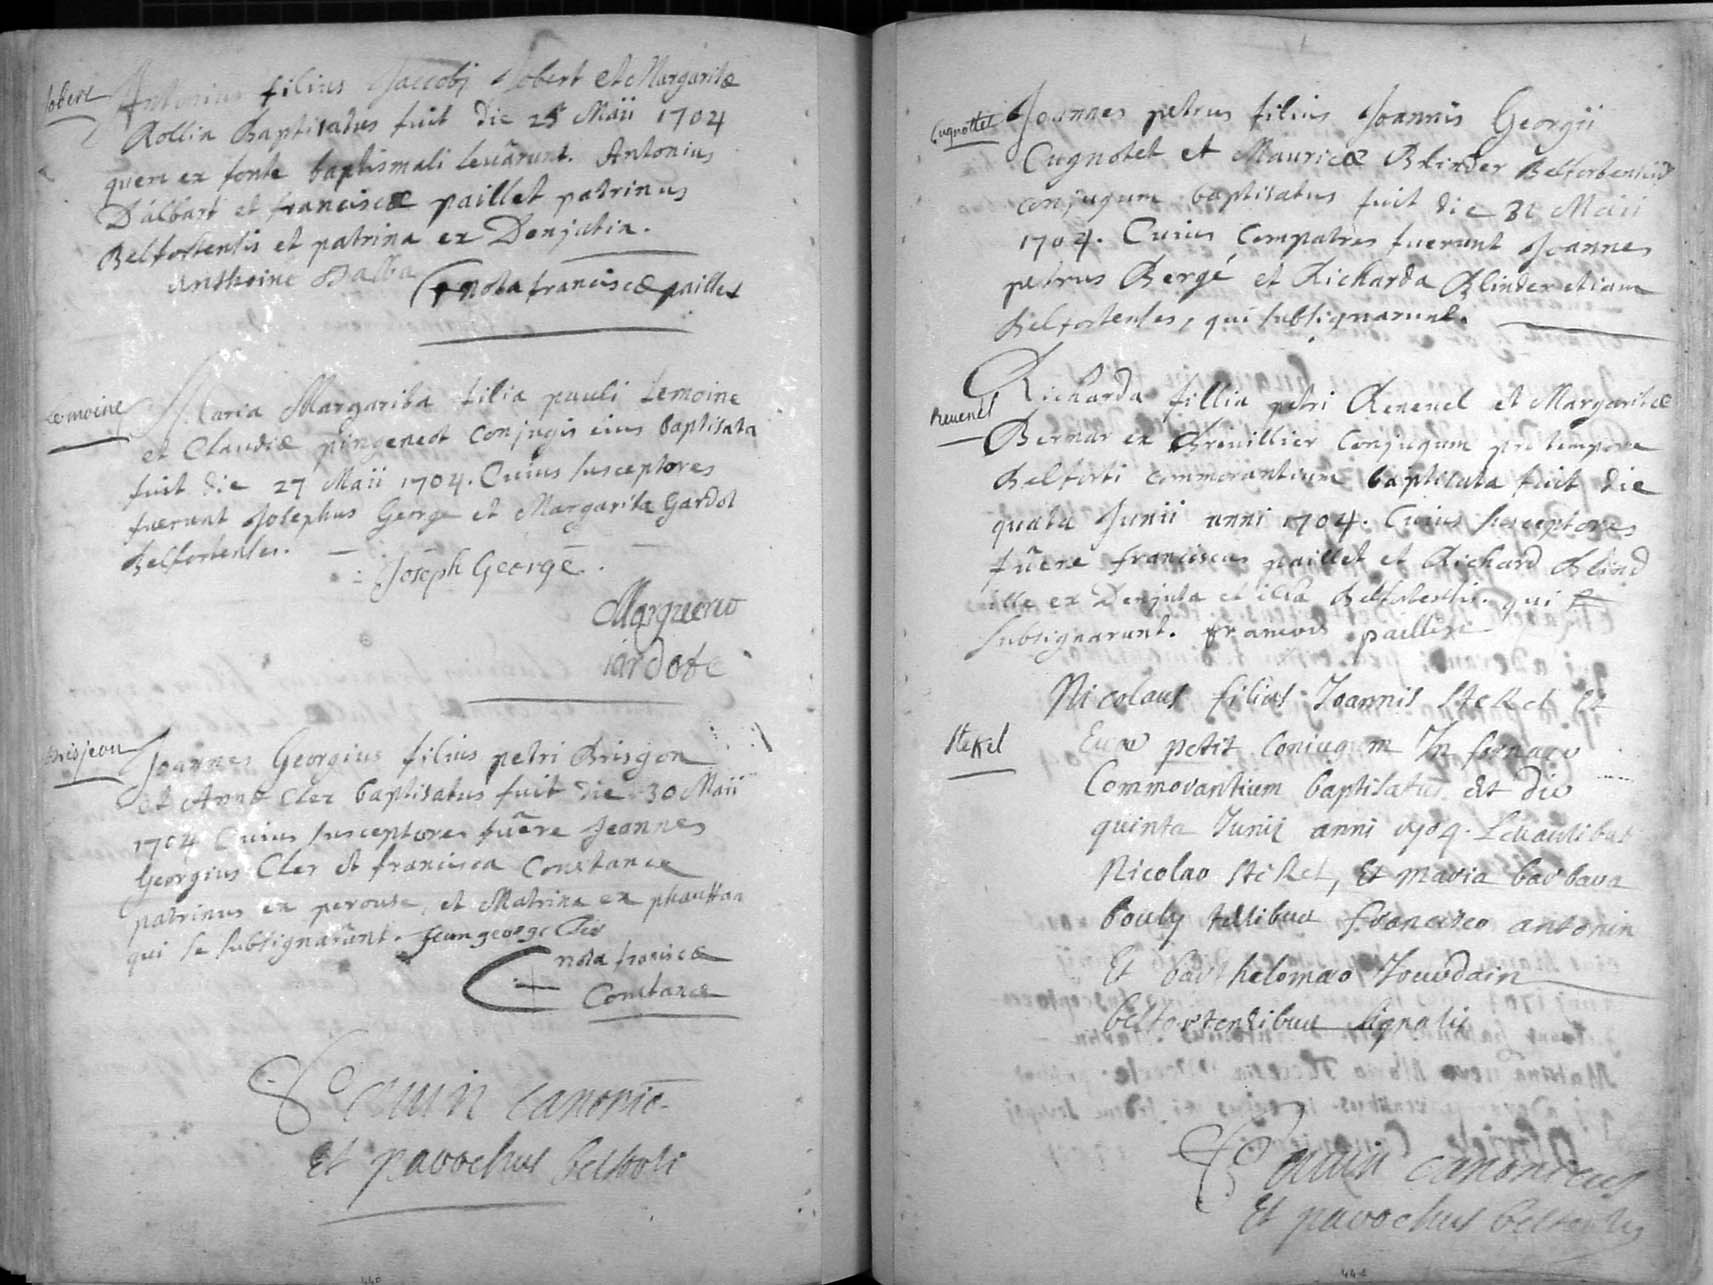 Jobert
Antonius filius Jaccobj Jobert et Margaritæ
Rollin Baptisatus fuit die 25 Maii 1704
quem ex fonte baptismali levârunt. Antonius
D'albart et franciscæ paillet patrinus
Belfortensis et patrina ex Denjutin.
Anthoine Dalba
nota franciscæ paillet
Lemoine
Maria Margarita filia pauli Lemoine
et Claudiæ pingeneot conjugis eius baptisata
fuit die 27 Maii 1704. Cuius susceptores
fuerunt Josephus George et Margarita Gardot
Belfortenses.
Joseph George
Marguerite
iardote
Brisjean
Joannes Georgius filius petri Brisjon
et Annæ Cler baptisatus fuit die 30 Maii
1704 Cuius susceptores fuêre Joannes
Georgius Cler et francisca Constance
patrinus ex perouse, et Matrina ex phauttan
qui se subsignarunt. Jean george Cler
nota francisca
Constance
canonic.
Et parochus belforti
440
Cugnottet
Joannes petrus filius Joannis Georgii
Cugnotet et Mauricæ Blinder Belfortensium
conjugum baptisatus fuit die 31 Maii
1704. Cuius Compatres fuerunt Joannes
petrus Bergé et Richarda Blinder etiam
Belfortenses, qui subsignarunt.
Revenel
Richarda fillia petri Revenel et Margaritæ
Bernar ex Grevillier Conjugum pro tempore
Belforti commorantium baptisata fuit die
quata Junii anni 1704. Cuius susceptores
fuêre franciscus paillet et Richard Blind
ille ex Denjuta et illa Belfortensis. qui
subsignarunt. francois pailleit
Stekel
Nicolaus filius Joannis Stekel Et
Evæ petit Coniugum In fornace
Commorantium baptisatus est die
quinta Junii anni 1704. Levantibus
Nicolao Stekel, Et maria barbara
pouly testibus francisco antonin
Et barthelomæo Jourdain
belfortensibus signatis
canonicus
Et parochus belfortis
441